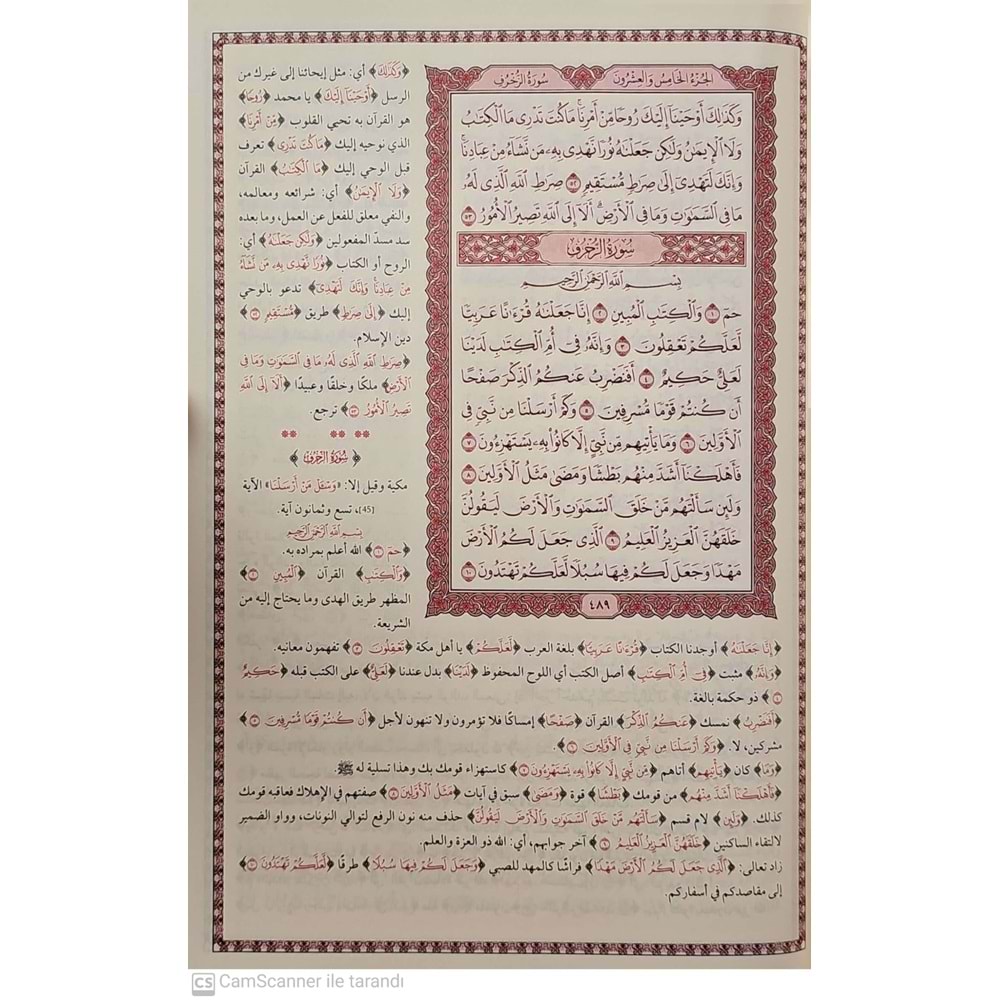 الجزء الخامس والعشرون
سورة الزخرف
وَكَذَٰلِكَ أَوْحَيْنَآ إِلَيْكَ رُوحًا مِّنْ أَمْرِنَا ۚ مَا كُنتَ تَدْرِى مَا ٱلْكِتَٰبُ
وَلَا ٱلْإِيمَٰنُ وَلَٰكِن جَعَلْنَٰهُ نُورًا نَّهْدِى بِهِۦ مَن نَّشَآءُ مِنْ عِبَادِنَا ۚ
وَإِنَّكَ لَتَهْدِىٓ إِلَىٰ صِرَٰطٍ مُّسْتَقِيمٍ ٥٢ صِرَٰطِ ٱللَّهِ ٱلَّذِى لَهُۥ
مَا فِى ٱلسَّمَٰوَٰتِ وَمَا فِى ٱلْأَرْضِ ۗ أَلَآ إِلَى ٱللَّهِ تَصِيرُ ٱلْأُمُورُ ٥٣
سورة الزخرف
بِسْمِ ٱللَّهِ ٱلرَّحْمَٰنِ ٱلرَّحِيمِ
حمٓ ١ وَٱلْكِتَٰبِ ٱلْمُبِينِ ٢ إِنَّا جَعَلْنَٰهُ قُرْءَٰنًا عَرَبِيًّا
لَّعَلَّكُمْ تَعْقِلُونَ ٣ وَإِنَّهُۥ فِىٓ أُمِّ ٱلْكِتَٰبِ لَدَيْنَا
لَعَلِىٌّ حَكِيمٌ ٤ أَفَنَضْرِبُ عَنكُمُ ٱلذِّكْرَ صَفْحًا
أَن كُنتُمْ قَوْمًا مُّسْرِفِينَ ٥ وَكَمْ أَرْسَلْنَا مِن نَّبِىٍّ فِى
ٱلْأَوَّلِينَ ٦ وَمَا يَأْتِيهِم مِّن نَّبِىٍّ إِلَّا كَانُوا۟ بِهِۦ يَسْتَهْزِءُونَ ٧
فَأَهْلَكْنَآ أَشَدَّ مِنْهُم بَطْشًا وَمَضَىٰ مَثَلُ ٱلْأَوَّلِينَ ٨
وَلَئِن سَأَلْتَهُم مَّنْ خَلَقَ ٱلسَّمَٰوَٰتِ وَٱلْأَرْضَ لَيَقُولُنَّ
خَلَقَهُنَّ ٱلْعَزِيزُ ٱلْعَلِيمُ ٩ ٱلَّذِى جَعَلَ لَكُمُ ٱلْأَرْضَ
مَهْدًا وَجَعَلَ لَكُمْ فِيهَا سُبُلًا لَّعَلَّكُمْ تَهْتَدُونَ ١٠
٤٨٩
﴿وَكَذَٰلِكَ﴾ أي: مثل إيحائنا إلى غيرك من
الرسل ﴿أَوْحَيْنَآ إِلَيْكَ﴾ يا محمد ﴿رُوحًا﴾
هو القرآن به تحيي القلوب ﴿مِّنْ أَمْرِنَا﴾
الذي نوحيه إليك ﴿مَا كُنتَ تَدْرِى﴾ تعرف
قبل الوحي إليك ﴿مَا ٱلْكِتَٰبُ﴾ القرآن
﴿وَلَا ٱلْإِيمَٰنُ﴾ أي: شرائعه ومعالمه،
والنفي معلق للفعل عن العمل، وما بعده
سد مسدّ المفعولين ﴿وَلَٰكِن جَعَلْنَٰهُ﴾ أي:
الروح أو الكتاب ﴿نُورًا نَّهْدِى بِهِۦ مَن نَّشَآءُ
مِنْ عِبَادِنَا وَإِنَّكَ لَتَهْدِىٓ﴾ تدعو بالوحي
إليك ﴿إِلَىٰ صِرَٰطٍ﴾ طريق ﴿مُّسْتَقِيمٍ ٥٢﴾
دين الإسلام.
﴿صِرَٰطِ ٱللَّهِ ٱلَّذِى لَهُۥ مَا فِى ٱلسَّمَٰوَٰتِ وَمَا فِى
ٱلْأَرْضِ﴾ ملكًا وخلقًا وعبيدًا ﴿أَلَآ إِلَى ٱللَّهِ
تَصِيرُ ٱلْأُمُورُ ٥٣﴾ ترجع.
﴿سورة الزخرف﴾
مكية وقيل إلا: «وَسْئَلْ مَنْ أَرْسَلْنَا» الآية
[45]، تسع وثمانون آية.
بِسْمِ ٱللَّهِ ٱلرَّحْمَٰنِ ٱلرَّحِيمِ
﴿حمٓ ١﴾ الله أعلم بمراده به.
﴿وَٱلْكِتَٰبِ﴾ القرآن ﴿ٱلْمُبِينِ ٢﴾
المظهر طريق الهدى وما يحتاج إليه من
الشريعة.
﴿إِنَّا جَعَلْنَٰهُ﴾ أوجدنا الكتاب ﴿قُرْءَٰنًا عَرَبِيًّا﴾ بلغة العرب ﴿لَّعَلَّكُمْ﴾ يا أهل مكة ﴿تَعْقِلُونَ ٣﴾ تفهمون معانيه.
﴿وَإِنَّهُۥ﴾ مثبت ﴿فِىٓ أُمِّ ٱلْكِتَٰبِ﴾ أصل الكتب أي اللوح المحفوظ ﴿لَدَيْنَا﴾ بدل عندنا ﴿لَعَلِىٌّ﴾ على الكتب قبله ﴿حَكِيمٌ
٤﴾ ذو حكمة بالغة.
﴿أَفَنَضْرِبُ﴾ نمسك ﴿عَنكُمُ ٱلذِّكْرَ﴾ القرآن ﴿صَفْحًا﴾ إمساكًا فلا تؤمرون ولا تنهون لأجل ﴿أَن كُنتُمْ قَوْمًا مُّسْرِفِينَ ٥﴾
مشركين، لا. ﴿وَكَمْ أَرْسَلْنَا مِن نَّبِىٍّ فِى ٱلْأَوَّلِينَ ٦﴾.
﴿وَمَا﴾ كان ﴿يَأْتِيهِم﴾ أتاهم ﴿مِّن نَّبِىٍّ إِلَّا كَانُوا۟ بِهِۦ يَسْتَهْزِءُونَ ٧﴾ كاستهزاء قومك بك وهذا تسلية له ﷺ.
﴿فَأَهْلَكْنَآ أَشَدَّ مِنْهُم﴾ من قومك ﴿بَطْشًا﴾ قوة ﴿وَمَضَىٰ﴾ سبق في آيات ﴿مَثَلُ ٱلْأَوَّلِينَ ٨﴾ صفتهم في الإهلاك فعاقبه قومك
كذلك. ﴿وَلَئِن﴾ لام قسم ﴿سَأَلْتَهُم مَّنْ خَلَقَ ٱلسَّمَٰوَٰتِ وَٱلْأَرْضَ لَيَقُولُنَّ﴾ حذف منه نون الرفع لتوالي النونات، وواو الضمير
لالتقاء الساكنين ﴿خَلَقَهُنَّ ٱلْعَزِيزُ ٱلْعَلِيمُ ٩﴾ آخر جوابهم، أي: الله ذو العزة والعلم.
زاد تعالى: ﴿ٱلَّذِى جَعَلَ لَكُمُ ٱلْأَرْضَ مَهْدًا﴾ فراشًا كالمهد للصبي ﴿وَجَعَلَ لَكُمْ فِيهَا سُبُلًا﴾ طرقًا ﴿لَّعَلَّكُمْ تَهْتَدُونَ ١٠﴾
إلى مقاصدكم في أسفاركم.
CS CamScanner ile tarandı